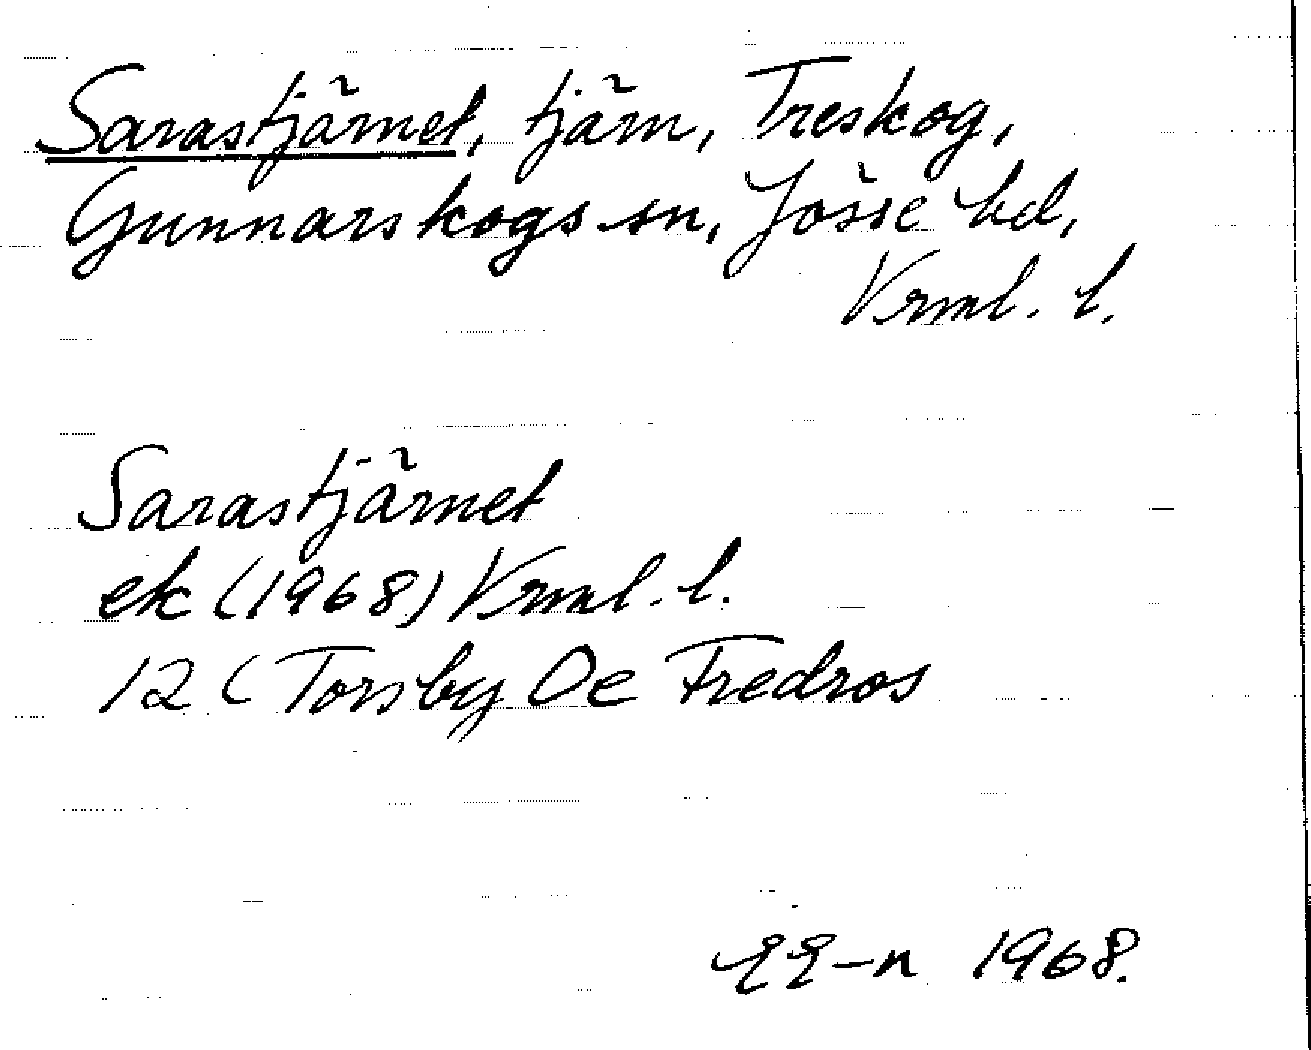 Sarastjärnet, tjärn, Treskog,
Gunnarskogs sn, Jösse hd,
Vrml. l.
Sarastjärnet
ek (1968) Vrml. l.
12 C Torsby De Fredros
1968.